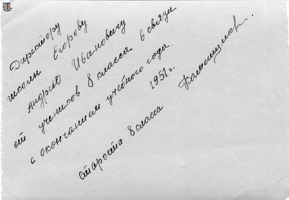 Директору
школы Егорову
Андрею Ивановичу
от учеников 8 класса в связи
с окончанием учебного года.
1951 г.
староста 8 класса